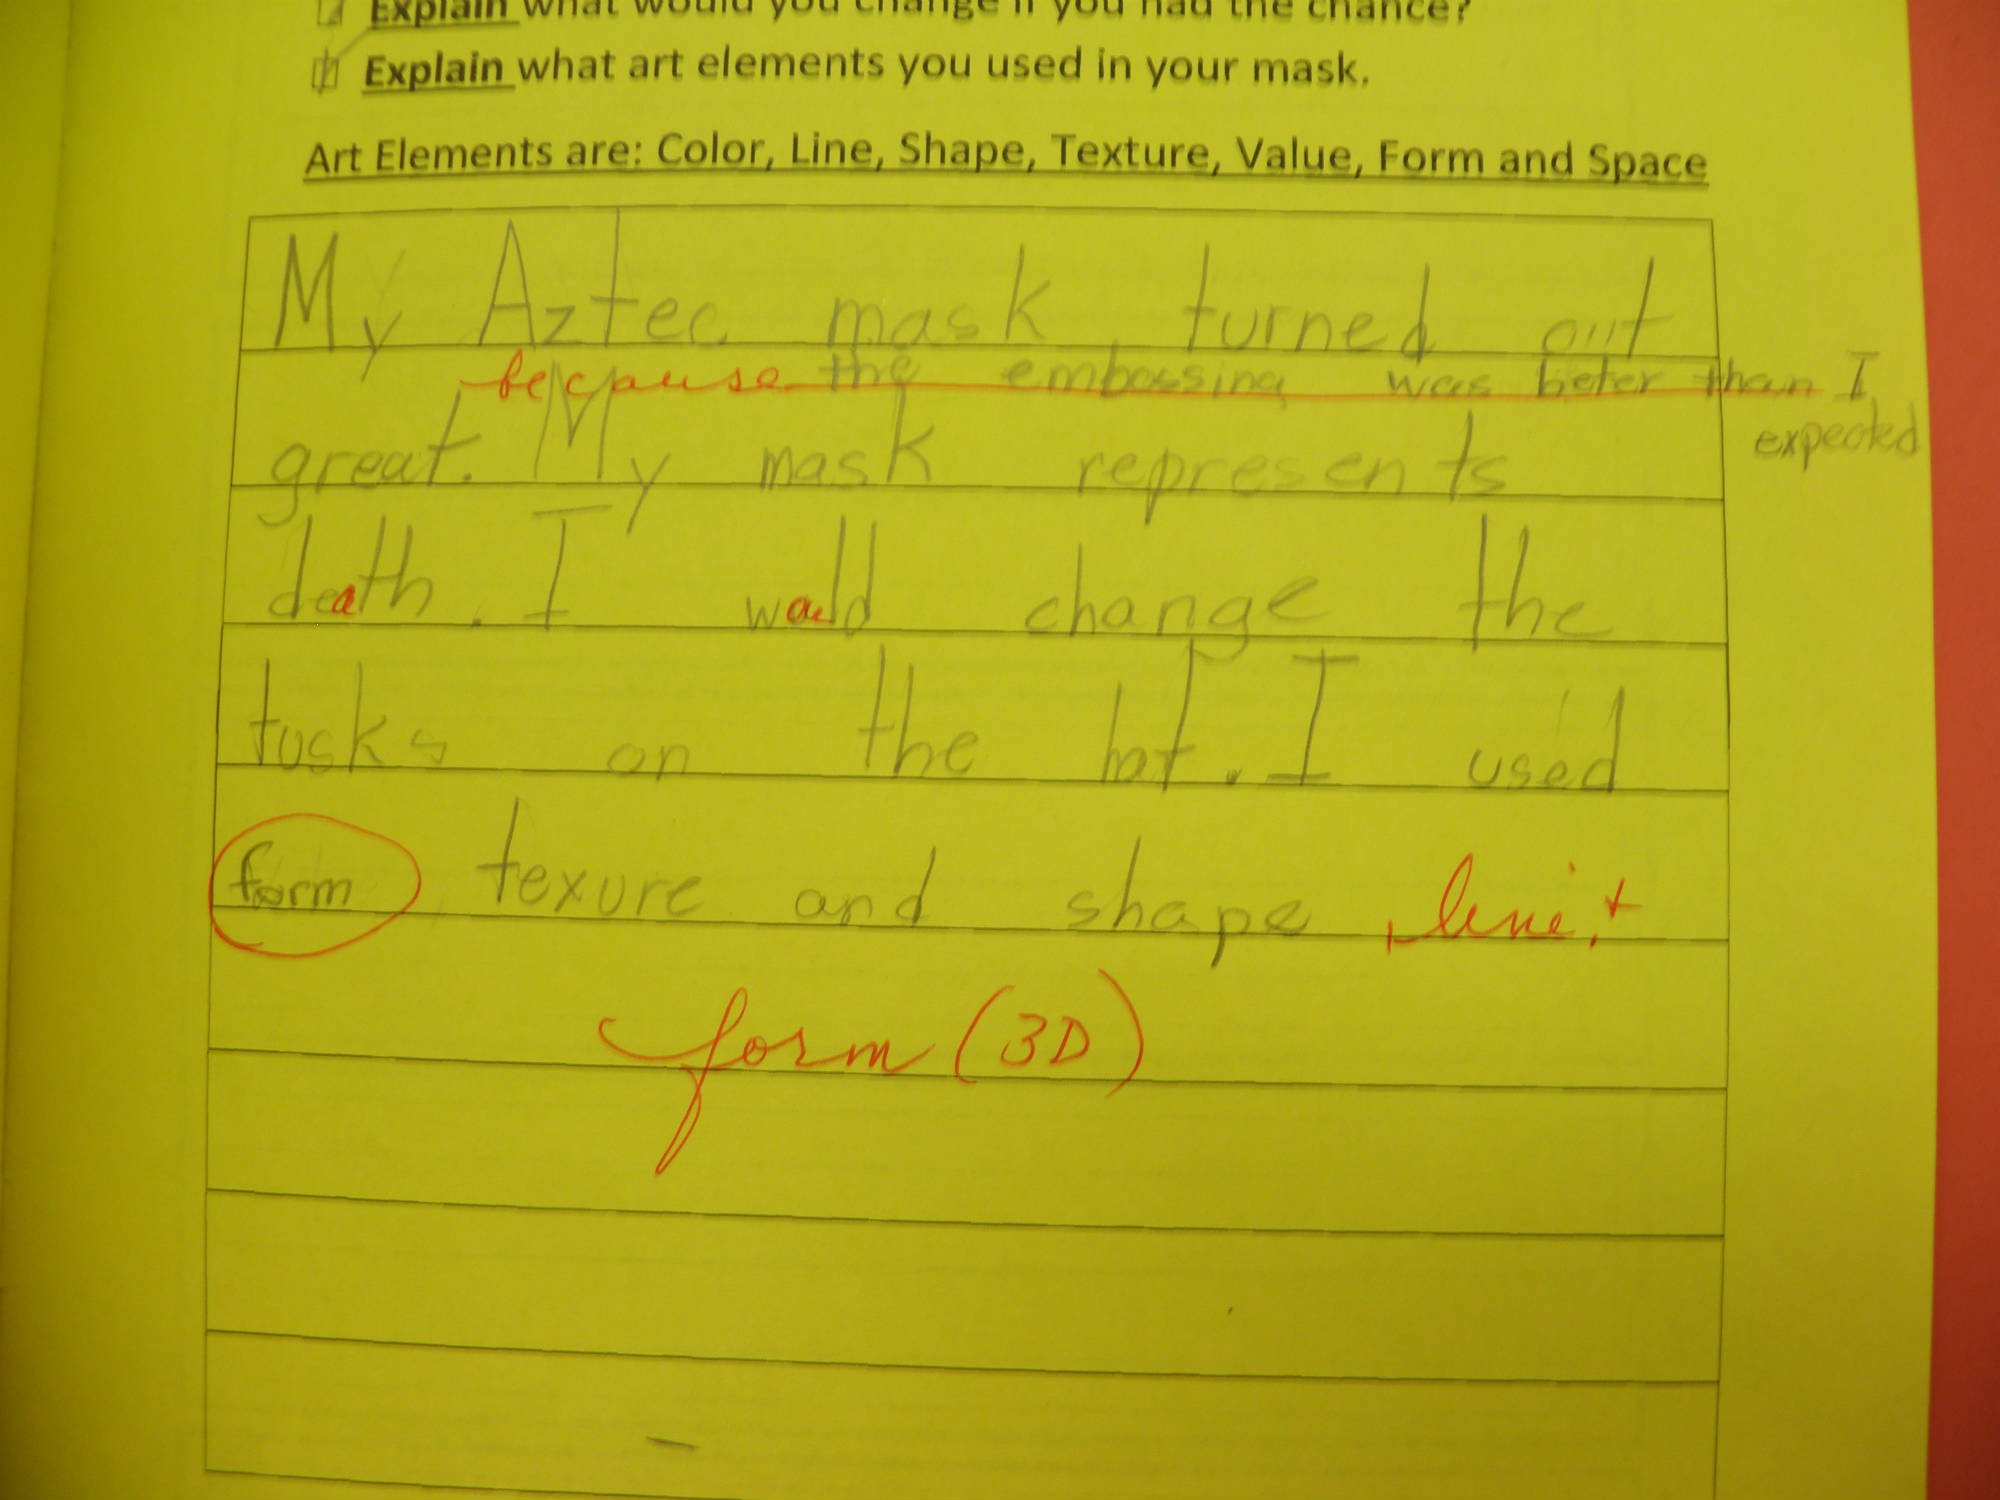 Explain what would you change if you had the chance?
Explain what art elements you used in your mask.
Art Elements are: Color, Line, Shape, Texture, Value, Form and Space
My Aztec mask turned out
because the embossing was beter than I
expected
great. My mask represents
death. I would change the
tusks on the hat. I used
form texure and shape, line, +
form (3D)